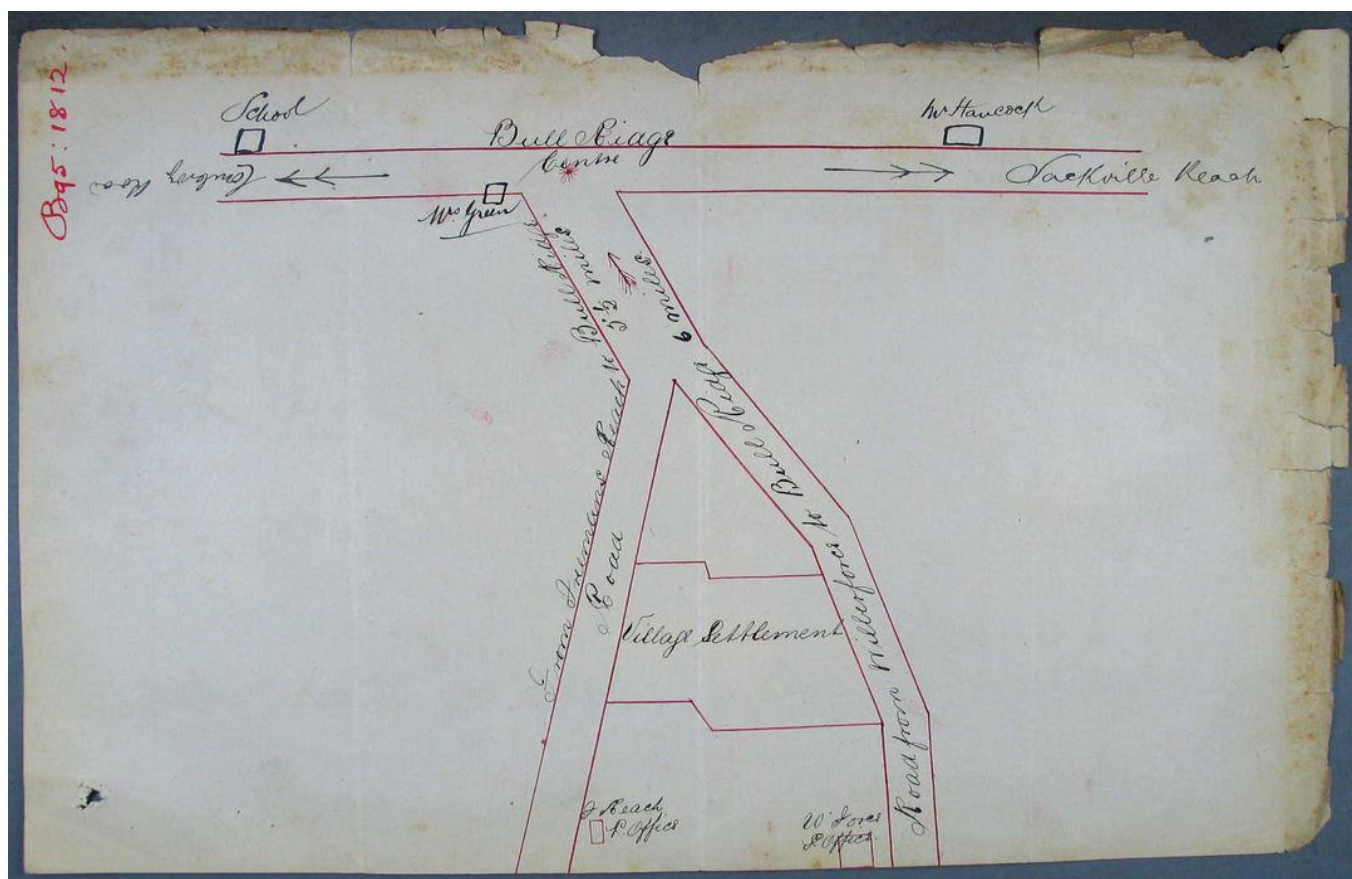 B95:1812.
School
Mr Hancock
Bull Ridge
Centre
Road
Sackville Reach
Mrs Green
From Freemans Reach to Bull Ridge
5½ miles
Road
Road from Wilberforce to Bull Ridge 6 miles
Village Settlement
F Reach
P. Office
W'Force
P. Office